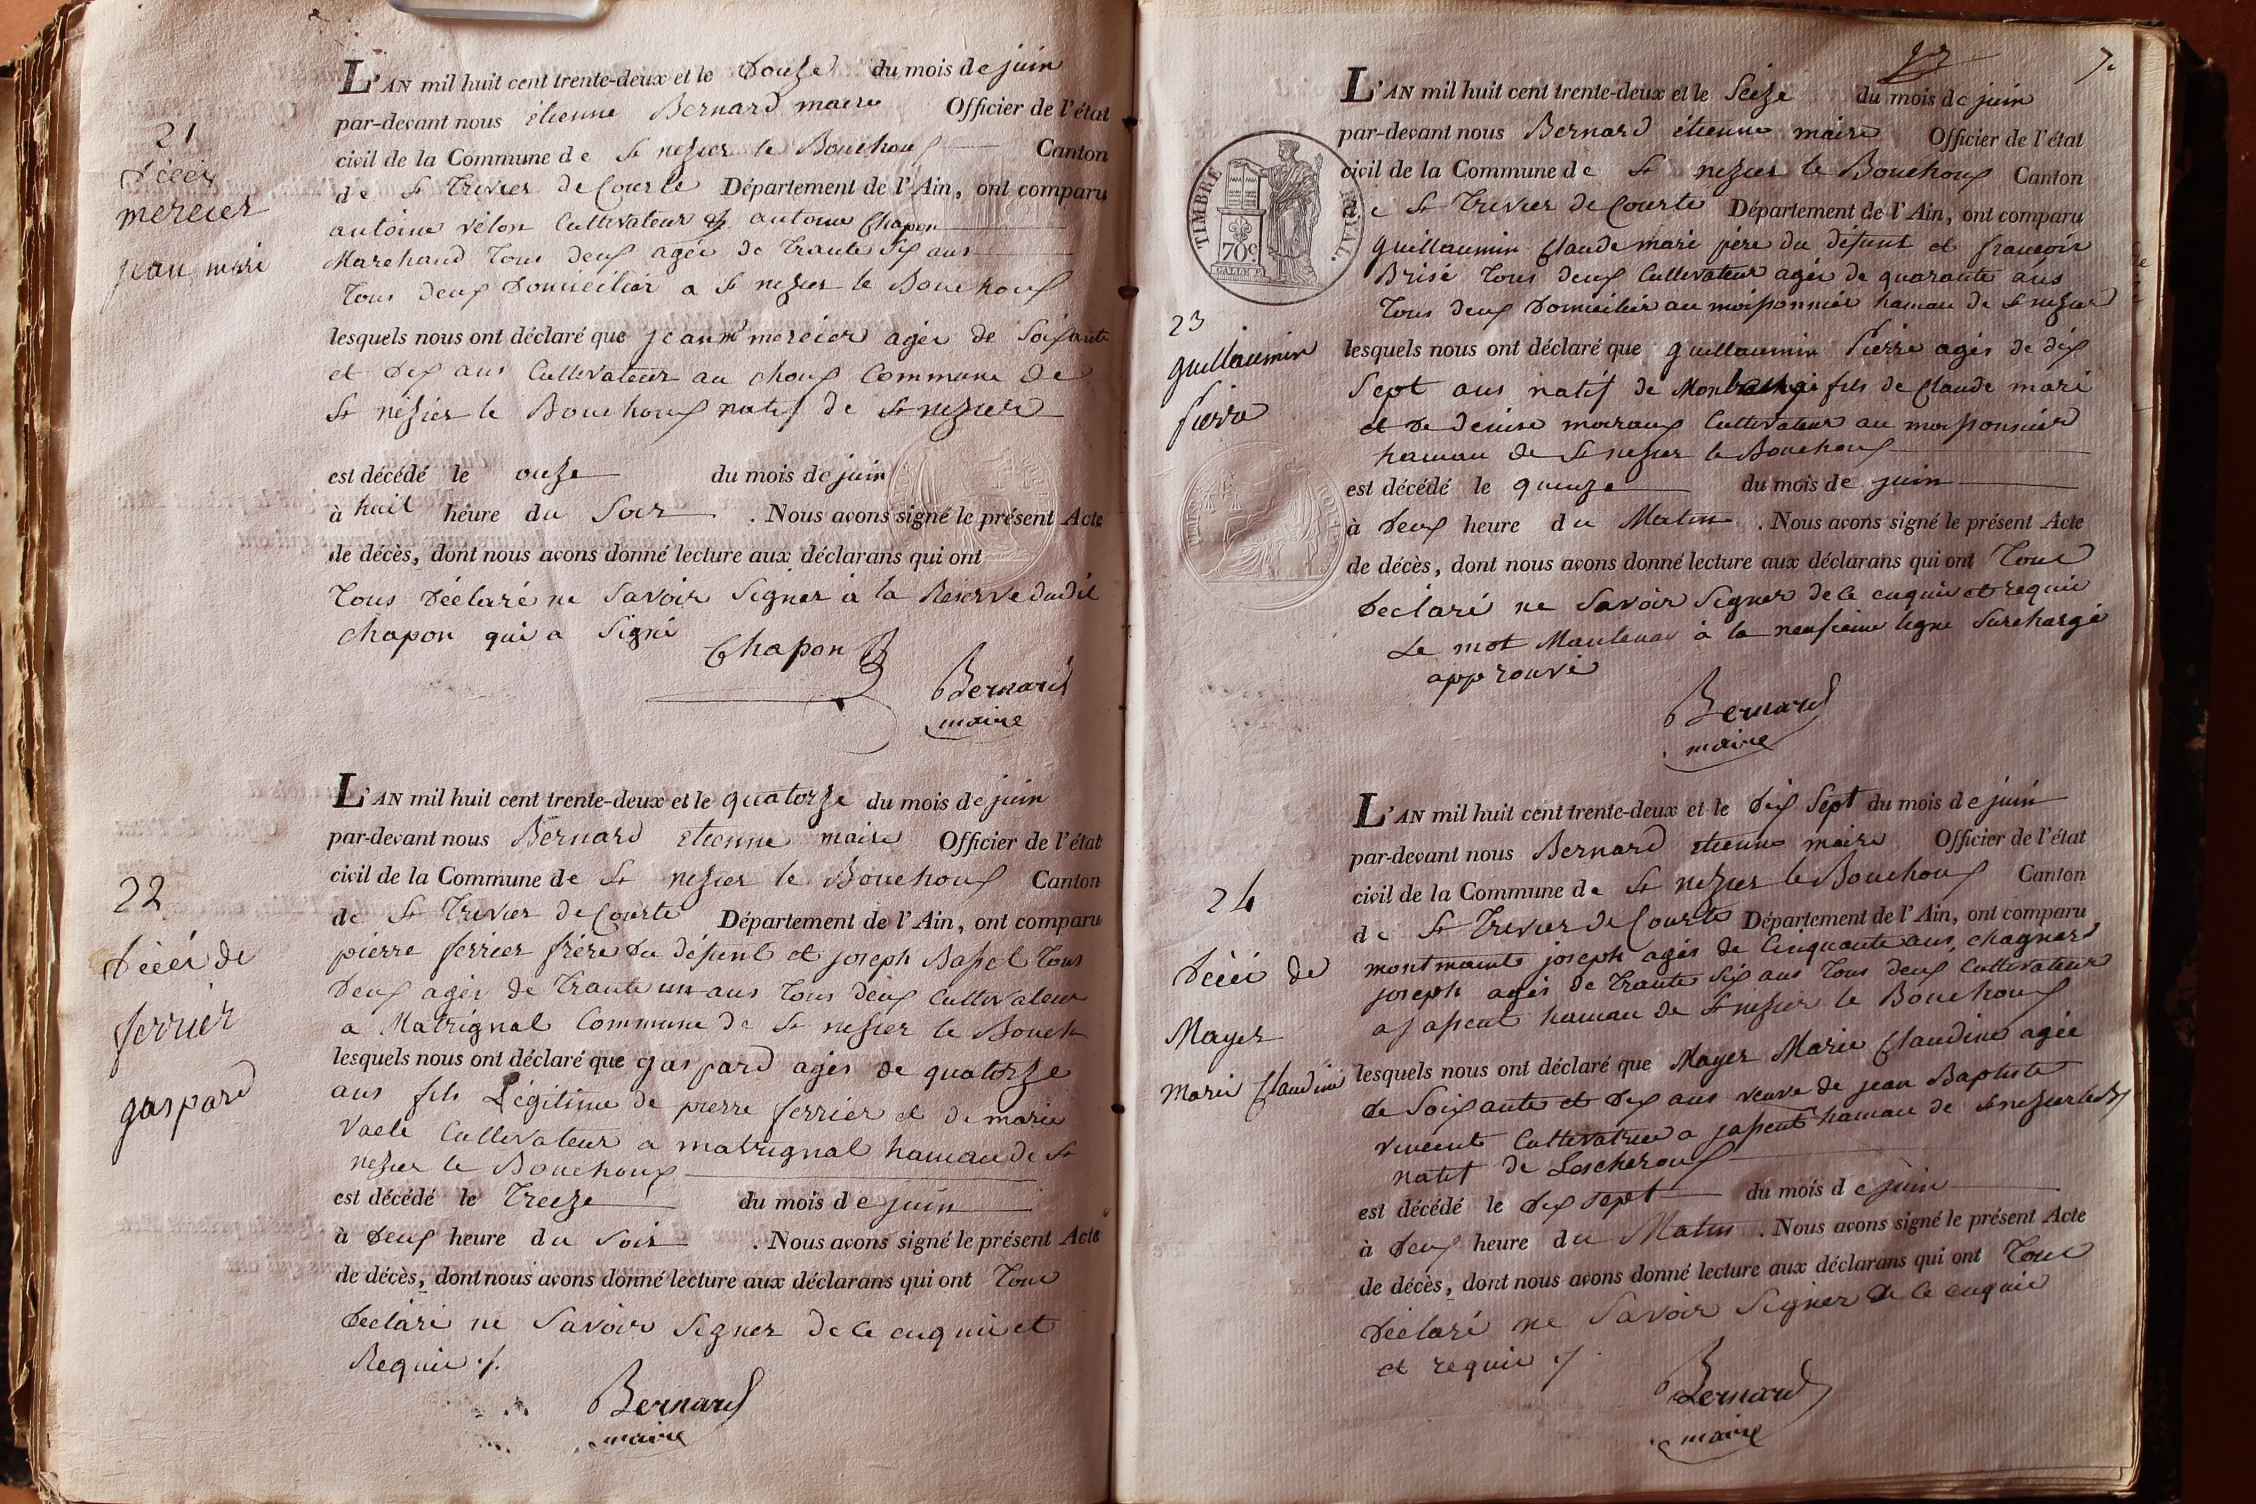 21
Décès
mercier
jean mari
L'AN mil huit cent trente-deux et le Douze du mois de juin
par-devant nous étienne Bernard maire Officier de l'état
civil de la Commune de St nezier le Bouchoux Canton
de St Trivier de Courte Département de l'Ain, ont comparu
antoine vélon Cultivateur et antoine Chapon
Marchand Tous deux agés de Trante Six ans
Tous deux Domiciliés a St nezier le Bouchoux
lesquels nous ont déclaré que jean m mercier agés de Soixante
et Dix ans Cultivateur au choux Commune de
St nézier le Bouchoux natif de St nezier
est décédé le onze du mois de juin
à huit heure du Soir . Nous avons signé le présent Acte
de décès, dont nous avons donné lecture aux déclarans qui ont
Tous Déclaré ne Savoir Signer à la Reserve dudit
Chapon qui a Signé
Chapon
Bernard
maire
22
Décés de
ferrier
gaspard
L'AN mil huit cent trente-deux et le quatorze du mois de juin
par-devant nous Bernard etienne maire Officier de l'état
civil de la Commune de St nezier le Bouchoux Canton
de St Trivier de Courte Département de l'Ain, ont comparu
pierre ferrier frère du défunt et joseph Bassel Tous
Deux agés de Trante un ans Tous deux Cultivateur
a Matrignal Commune de St nezier le Bouch
lesquels nous ont déclaré que gaspard agés de quatorze
ans fils Légitime de pierre ferrier et de marie
Cultivateur a matrignal hamau de St
nezier le Bouchoux
est décédé le Treize du mois de juin
à Deux heure du Soir . Nous avons signé le présent Acte
de décès, dont nous avons donné lecture aux déclarans qui ont Tous
Déclaré ne Savoir Signer de ce enquis et
Requis ./.
Bernard
maire
7.
TIMBRE ROYAL.
70c
23
guillaumin
Pierre
L'AN mil huit cent trente-deux et le Seize du mois de juin
par-devant nous Bernard étienne maire Officier de l'état
civil de la Commune de St nezier le Bouchoux Canton
de St Trivier de Courte Département de l'Ain, ont comparu
guillaumin Claude mari père du défunt et francois
Brisé Tous deux Cultivateur agés de quarante ans
Tous deux Domiciliés au moissonnier hamau de St nezier
lesquels nous ont déclaré que guillaumin Pierre agés de dix
Sept ans natif de fils de Claude mari
et de Denise moiraux Cultivateur au moissonnier
hamau de St nezier le Bouchoux
est décédé le quinze du mois de juin
à Deux heure du Matin . Nous avons signé le présent Acte
de décès, dont nous avons donné lecture aux déclarans qui ont Tous
Déclaré ne Savoir Signer de ce enquis et requis
Le mot à la neufieme ligne Surchargé
approuvé
Bernard
maire
24
Décés de
Mayer
Marie Claudine
L'AN mil huit cent trente-deux et le Dix Sept du mois de juin
par-devant nous Bernard etienne maire Officier de l'état
civil de la Commune de St nezier le Bouchoux Canton
de St Trivier de Courte Département de l'Ain, ont comparu
joseph agés de Cinquante ans, chagnard
joseph agés de Trante Six ans Tous deux Cultivateur
hamau de St nezier le Bouchoux
lesquels nous ont déclaré que Mayer Marie Claudine agée
de Soixante et Dix ans veuve de jean Baptiste
vincent Cultivatrice a hamau de St nezier le B
natif de Lescheroux
est décédé le dix sept du mois de juin
à Deux heure du Matin . Nous avons signé le présent Acte
de décès, dont nous avons donné lecture aux déclarans qui ont Tous
Déclaré ne Savoir Signer de ce enquis
et requis ./.
Bernard
maire